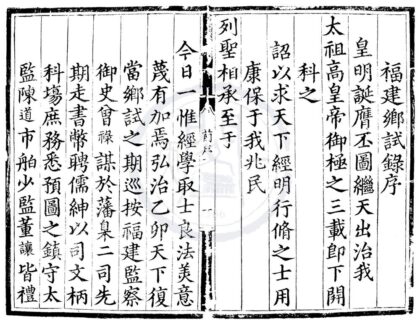 福建鄉試錄序
皇明誕膺丕圖繼天出治我
太祖高皇帝御極之三載即下開
科之
詔以求天下經明行脩之士用
康保于我兆民
列聖相承至于
今日一惟經學取士良法美意
蔑有加焉弘治乙卯天下復
當鄉試之期巡按福建監察
御史曾祿謀於藩臬二司先
期走書幣聘儒紳以司文柄
科場庶務悉預圖之鎮守太
監陳道市舶少監董讓皆禮